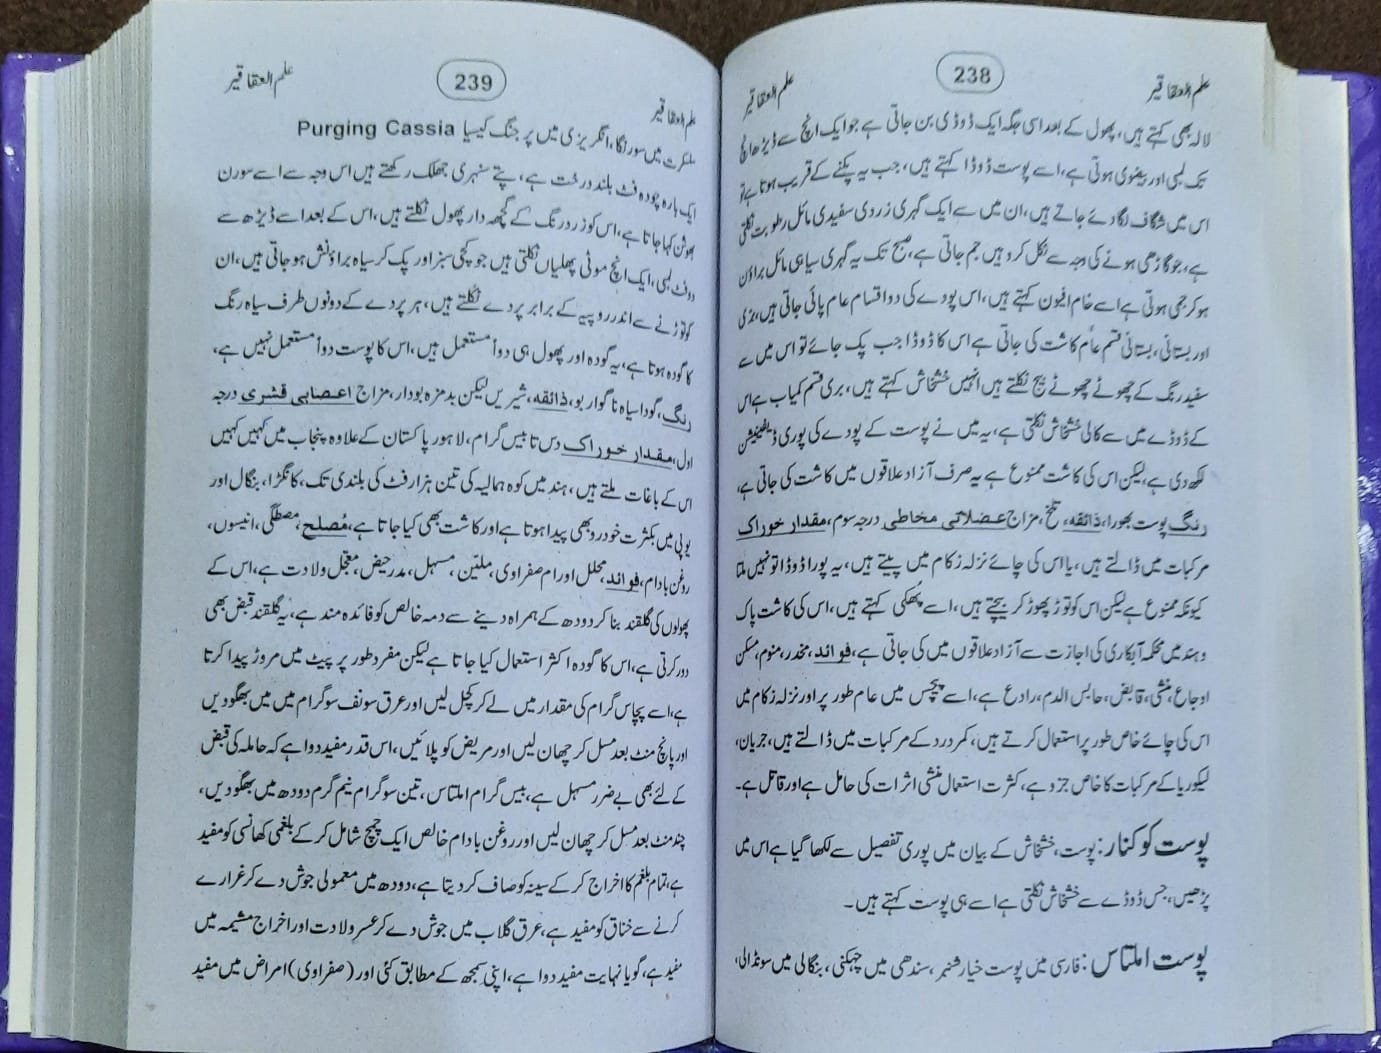 علم العقاقیر
238
علم العقاقیر
لالہ بھی کہتے ہیں، پھول کے بعد اسی جگہ ایک ڈوڈی بن جاتی ہے جو ایک انچ سے ڈیڑھ انچ
تک لمبی اور بیضوی ہوتی ہے، اسے پوست ڈوڈا کہتے ہیں، جب یہ پکنے کے قریب ہوتا ہے تو
اس میں شگاف لگا دئے جاتے ہیں، ان میں سے ایک گہری زردی سفیدی مائل رطوبت نکلتی
ہے، جو گاڑھی ہونے کی وجہ سے نکل کر وہیں جم جاتی ہے، صبح تک یہ گہری سیاہی مائل براؤن
ہو کر جمی ہوتی ہے اسے خام افیون کہتے ہیں، اس پودے کی دو اقسام عام پائی جاتی ہیں، بری
اور بستانی، بستانی قسم عام کاشت کی جاتی ہے اس کا ڈوڈا جب پک جائے تو اس میں سے
سفید رنگ کے چھوٹے چھوٹے بیج نکلتے ہیں انہیں خشخاش کہتے ہیں، بری قسم کمیاب ہے اس
کے ڈوڈے میں سے کالی خشخاش نکلتی ہے، یہ میں نے پوست کے پودے کی پوری ڈیفینیشن
لکھ دی ہے، لیکن اس کی کاشت ممنوع ہے یہ صرف آزاد علاقوں میں کاشت کی جاتی ہے،
رنگ پوست بھورا، ذائقہ، تلخ، مزاج عضلاتی مخاطی درجہ سوم، مقدار خوراک
مرکبات میں ڈالتے ہیں، یا اس کی چائے نزلہ زکام میں پیتے ہیں، یہ پورا ڈوڈا تو نہیں ملتا
کیونکہ ممنوع ہے لیکن اس کو توڑ پھوڑ کر بیچتے ہیں، اسے پھکی کہتے ہیں، اس کی کاشت پاک
و ہند میں محکمہ آبکاری کی اجازت سے آزاد علاقوں میں کی جاتی ہے، فوائد، مخدر، منوم، مسکن
اوجاع، منشی، قابض، حابس الدم، رادع ہے، اسے پیچس میں عام طور پر اور نزلہ زکام میں
اس کی چائے خاص طور پر استعمال کرتے ہیں، کمر درد کے مرکبات میں ڈالتے ہیں، جریان،
لیکوریا کے مرکبات کا خاص جزو ہے، کثرت استعمال منشی اثرات کی حامل ہے اور قاتل ہے۔
پوست کوکنار: پوست، خشخاش کے بیان میں پوری تفصیل سے لکھا گیا ہے اس میں
پڑھیں، جس ڈوڈے سے خشخاش نکلتی ہے اسے ہی پوست کہتے ہیں۔
پوست املتاس: فارسی میں پوست خیار شنبر، سندھی میں چہکنی، بنگالی میں سونڈالی،
علم العقاقیر
239
علم العقاقیر
سنسکرت میں سورنگا، انگریزی میں پرجنگ کیسیا Purging Cassia
ایک بارہ چودہ فٹ بلند درخت ہے، پتے سنہری جھلک رکھتے ہیں اس وجہ سے اسے سورن
بھوشن کہا جاتا ہے، اس کو زرد رنگ کے گچھہ دار پھول نکلتے ہیں، اس کے بعد اسے ڈیڑھ سے
دو فٹ لمبی، ایک انچ موٹی پھلیاں نکلتی ہیں جو کچی سبز اور پک کر سیاہ براؤنش ہو جاتی ہیں، ان
کو توڑنے سے اندر روپیہ کے برابر پردے نکلتے ہیں، ہر پردے کے دونوں طرف سیاہ رنگ
کا گودہ ہوتا ہے، یہ گودہ اور پھول ہی دوأ مستعمل ہیں، اس کا پوست دوأ مستعمل نہیں ہے،
رنگ، گودا سیاہ ناگوار بو، ذائقہ، شیریں لیکن بدمزہ بودار، مزاج اعصابی قشری درجہ
اول، مقدار خوراک دس تا بیس گرام، لاہور پاکستان کے علاوہ پنجاب میں کہیں کہیں
اس کے باغات ملتے ہیں، ہند میں کوہ ہمالیہ کی تین ہزار فٹ کی بلندی تک، کانگڑا، بنگال اور
یوپی میں بکثرت خودرو بھی پیدا ہوتا ہے اور کاشت بھی کیا جاتا ہے، مُصلح، مصطگی، انیسوں،
روغن بادام، فوائد، محلل اورام صفراوی، ملیّن، مسہل، مدر حیض، معجّل ولادت ہے، اس کے
پھولوں کی گلقند بنا کر دودھ کے ہمراہ دینے سے دمہ خالص کو فائدہ مند ہے، یہ گلقند قبض بھی
دور کرتی ہے، اس کا گودہ اکثر استعمال کیا جاتا ہے لیکن مفرد طور پر پیٹ میں مروڑ پیدا کرتا
ہے، اسے پچاس گرام کی مقدار میں لے کر کچل لیں اور عرق سونف سو گرام میں میں بھگو دیں
اور پانچ منٹ بعد مسل کر چھان لیں اور مریض کو پلائیں، اس قدر مفید دوا ہے کہ حاملہ کی قبض
کے لئے بھی بے ضرر مسہل ہے، بیس گرام املتاس، تین سو گرام نیم گرم دودھ میں بھگو دیں،
چند منٹ بعد مسل کر چھان لیں اور روغن بادام خالص ایک چمچ شامل کر کے بلغمی کھانسی کو مفید
ہے، تمام بلغم کا اخراج کر کے سینہ کو صاف کر دیتا ہے، دودھ میں معمولی جوش دے کر غرارے
کرنے سے خناق کو مفید ہے، عرق گلاب میں جوش دے کر عسر ولادت اور اخراج مشیمہ میں
مفید ہے، گویا نہایت مفید دوا ہے، اپنی سمجھ کے مطابق کئی اور (صفراوی) امراض میں مفید